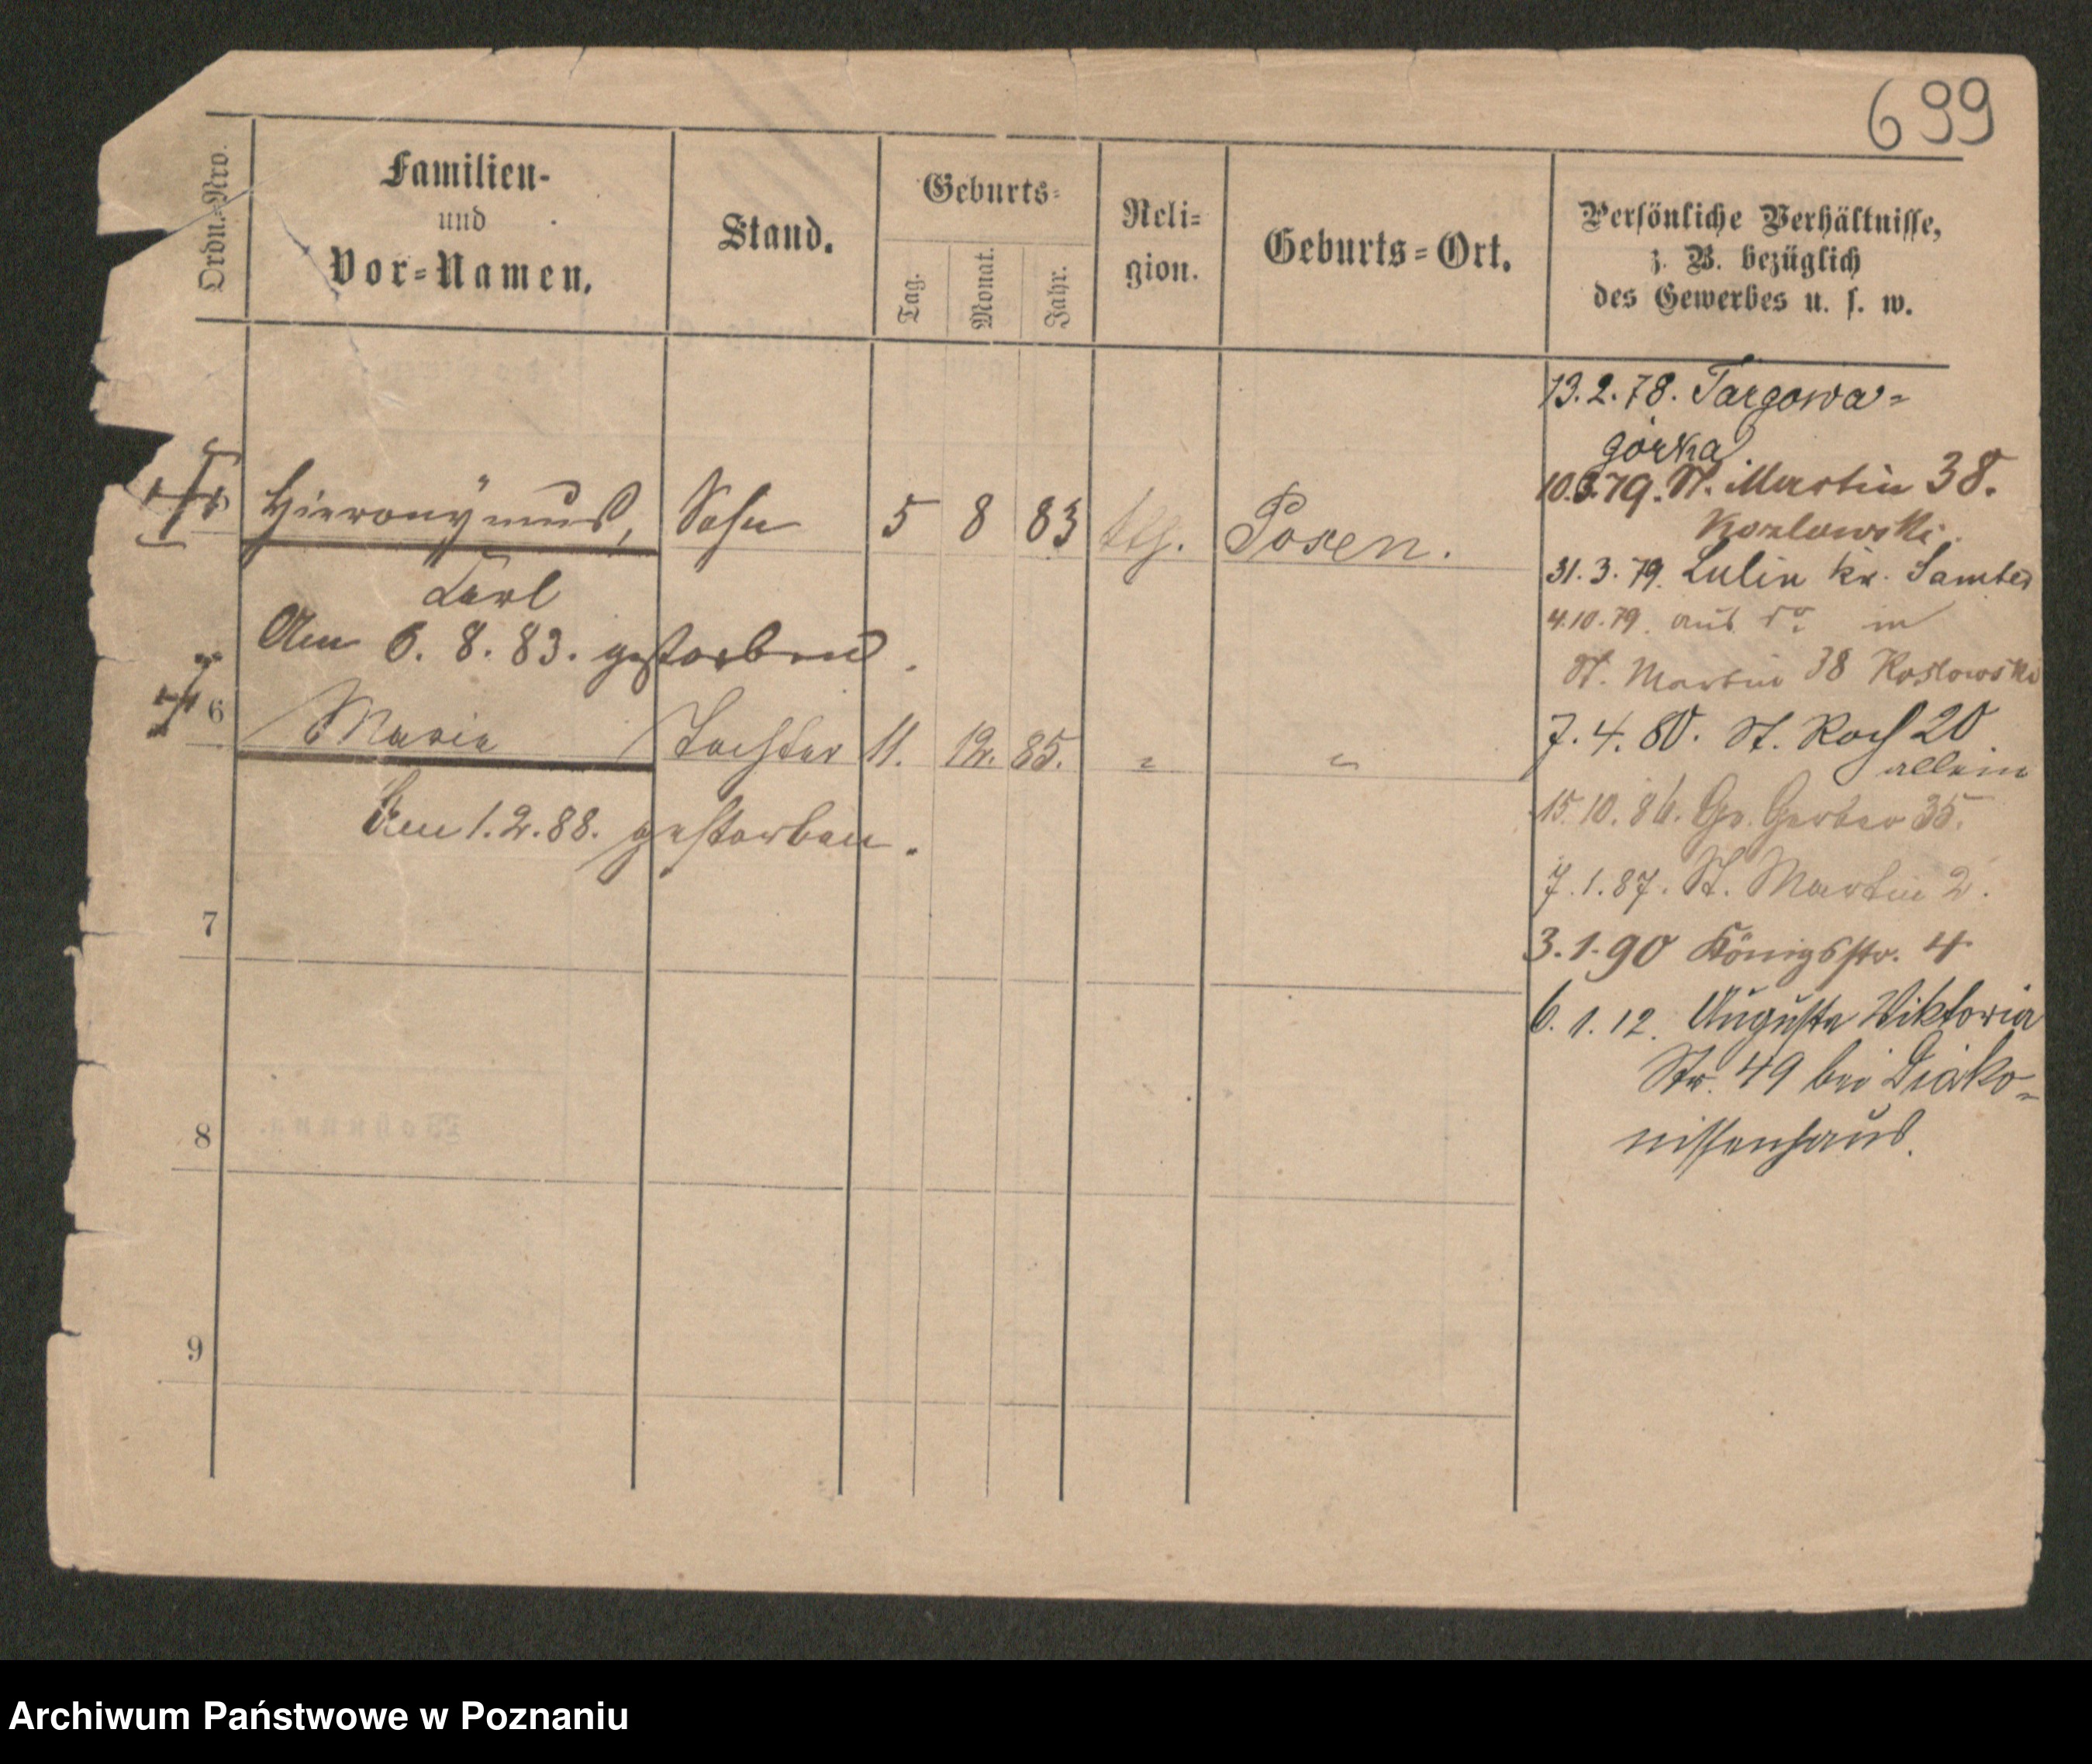 699
Ordn.=Nro.
Familien-
und
Vor=Namen.
Stand.
Geburts=
Tag.
Monat.
Jahr.
Reli=
gion.
Geburts=Ort.
Persönliche Verhältnisse,
z. B. bezüglich
des Gewerbes u. s. w.
Hieronymus, Sohn 5 8 83 ktg. Posen.
Carl
Am 6. 8. 83. gestorben.
6 Marie Tochter 11. 12. 85. " "
Am 1.2.88. gestorben.
7
8
9
13.2.78. Targowa=
górka
10.3.79. St. Martin 38.
Kozlowski.
31.3.79. Lulin Kr. Samter
4.10.79. aus do in
St. Martin 38 Koslowski
7.4.80. St. Roch 20
allein
15.10.86. Gr. Gerber 35.
7.1.87. St. Martin 2.
3.1.90 Königsstr. 4
6.1.12. Augusta Viktoria
Str. 49 bei Diako=
nissenhaus.
Archiwum Państwowe w Poznaniu